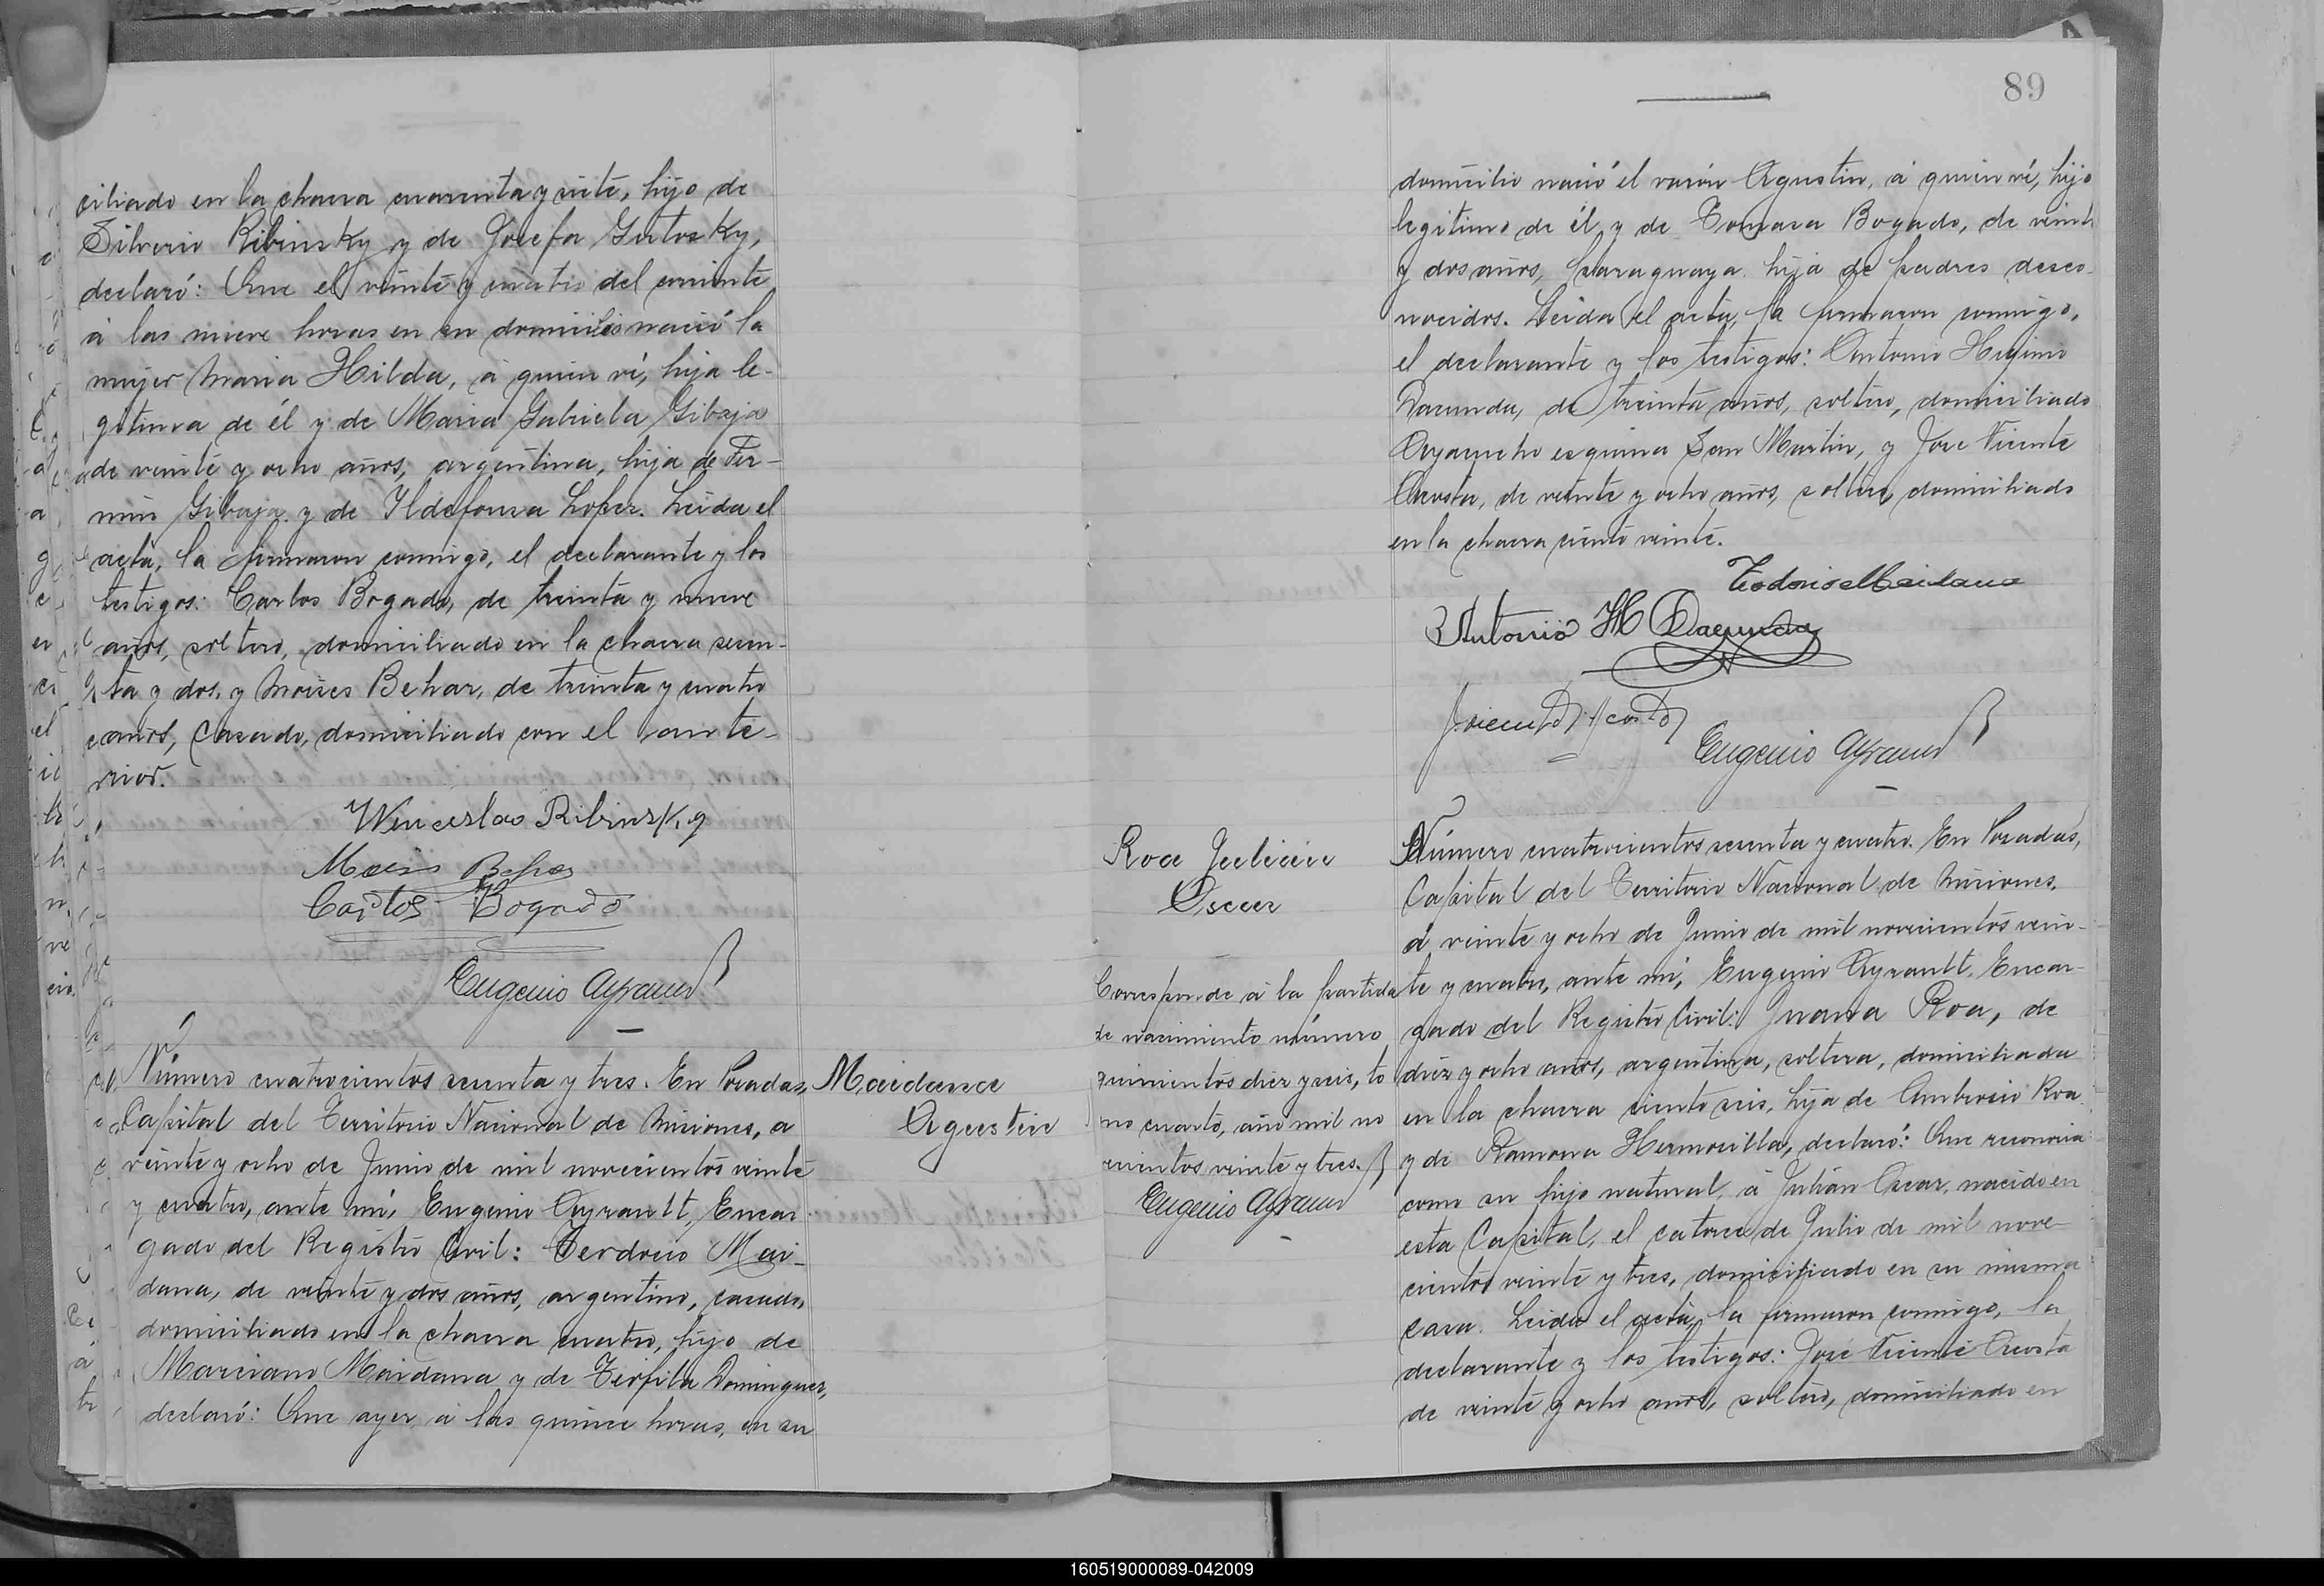 ciliado en la chacra cuarenta y siete, hijo de
Silverio Ribinsky y de Josefa Gutosky,
declaró: Que el veinte y cuatro del corriente
á las nueve horas en su domicilio nació la
mujer Maria Hilda, á quien ví, hija le-
gitima de él y de Maria Gabriela Gibaja
de veinte y ocho años, argentina, hija de Fer-
min Gibaja y de Ildefonsa Lopez. Leida el
acta, la firmaron conmigo, el declarante y los
testigos: Carlos Bogado, de treinta y nueve
años, soltero, domiciliado en la chacra sesen-
ta y dos, y Moises Behar, de treinta y cuatro
años, casado, domiciliado con el ante-
rior.
Wenceslao Ribinsky
Moises Behar
Carlos Bogado
Eugenio Ayrault
Número cuatrocientos sesenta y tres. En Posadas,
Capital del Territorio Nacional de Misiones, a
veinte y ocho de Junio de mil novecientos veinte
y cuatro, ante mí, Eugenio Ayrault, Encar
gado del Registro Civil: Teodosio Mai-
dana, de veinte y dos años, argentino, casado,
domiciliado en la chacra cuatro, hijo de
Marciano Maidana y de Teofila Dominguez,
declaró: Que ayer á las quince horas, en su
Maidana
Agustin
89
domicilio nació el varón Agustin, á quien ví, hijo
legitimo de él y de Tomasa Bogado, de veinte
y dos años, paraguaya hija de padres desco-
nocidos. Leida el acta, la firmaron conmigo,
el declarante y los testigos: Antonio Higinio
Dacunda, de treinta años, soltero, domiciliado
Ayacucho esquina San Martin, y Jose Vicente
Acosta, de veinte y ocho años, soltero, domiciliado
en la chacra ciento veinte.
Teodosio Maidana
Antonio H Dacunda
J. Vicente Acosta
Eugenio Ayrault
Roa Julián
Oscar
Corresponde á la partida
de nacimiento número
quinientos diez y seis, to
mo cuarto, año mil no
vecientos veinte y tres.
Eugenio Ayrault
Número cuatrocientos sesenta y cuatro. En Posadas,
Capital del Territorio Nacional de Misiones,
á veinte y ocho de Junio de mil novecientos vein-
te y cuatro, ante mí, Eugenio Ayrault, Encar-
gado del Registro Civil: Juana Roa, de
diez y ocho años, argentina, soltera, domiciliada
en la chacra ciento seis, hija de Ambrosio Roa
y de Ramona Hermosilla, declaró: Que reconocia
como su hijo natural, á Julián Oscar, nacido en
esta Capital, el catorce de Julio de mil nove-
cientos veinte y tres, domiciliado en su misma
casa. Leida el acta, la firmaron conmigo, la
declarante y los testigos: José Vicente Acosta
de veinte y ocho años, soltero, domiciliado en
160519000089-042009